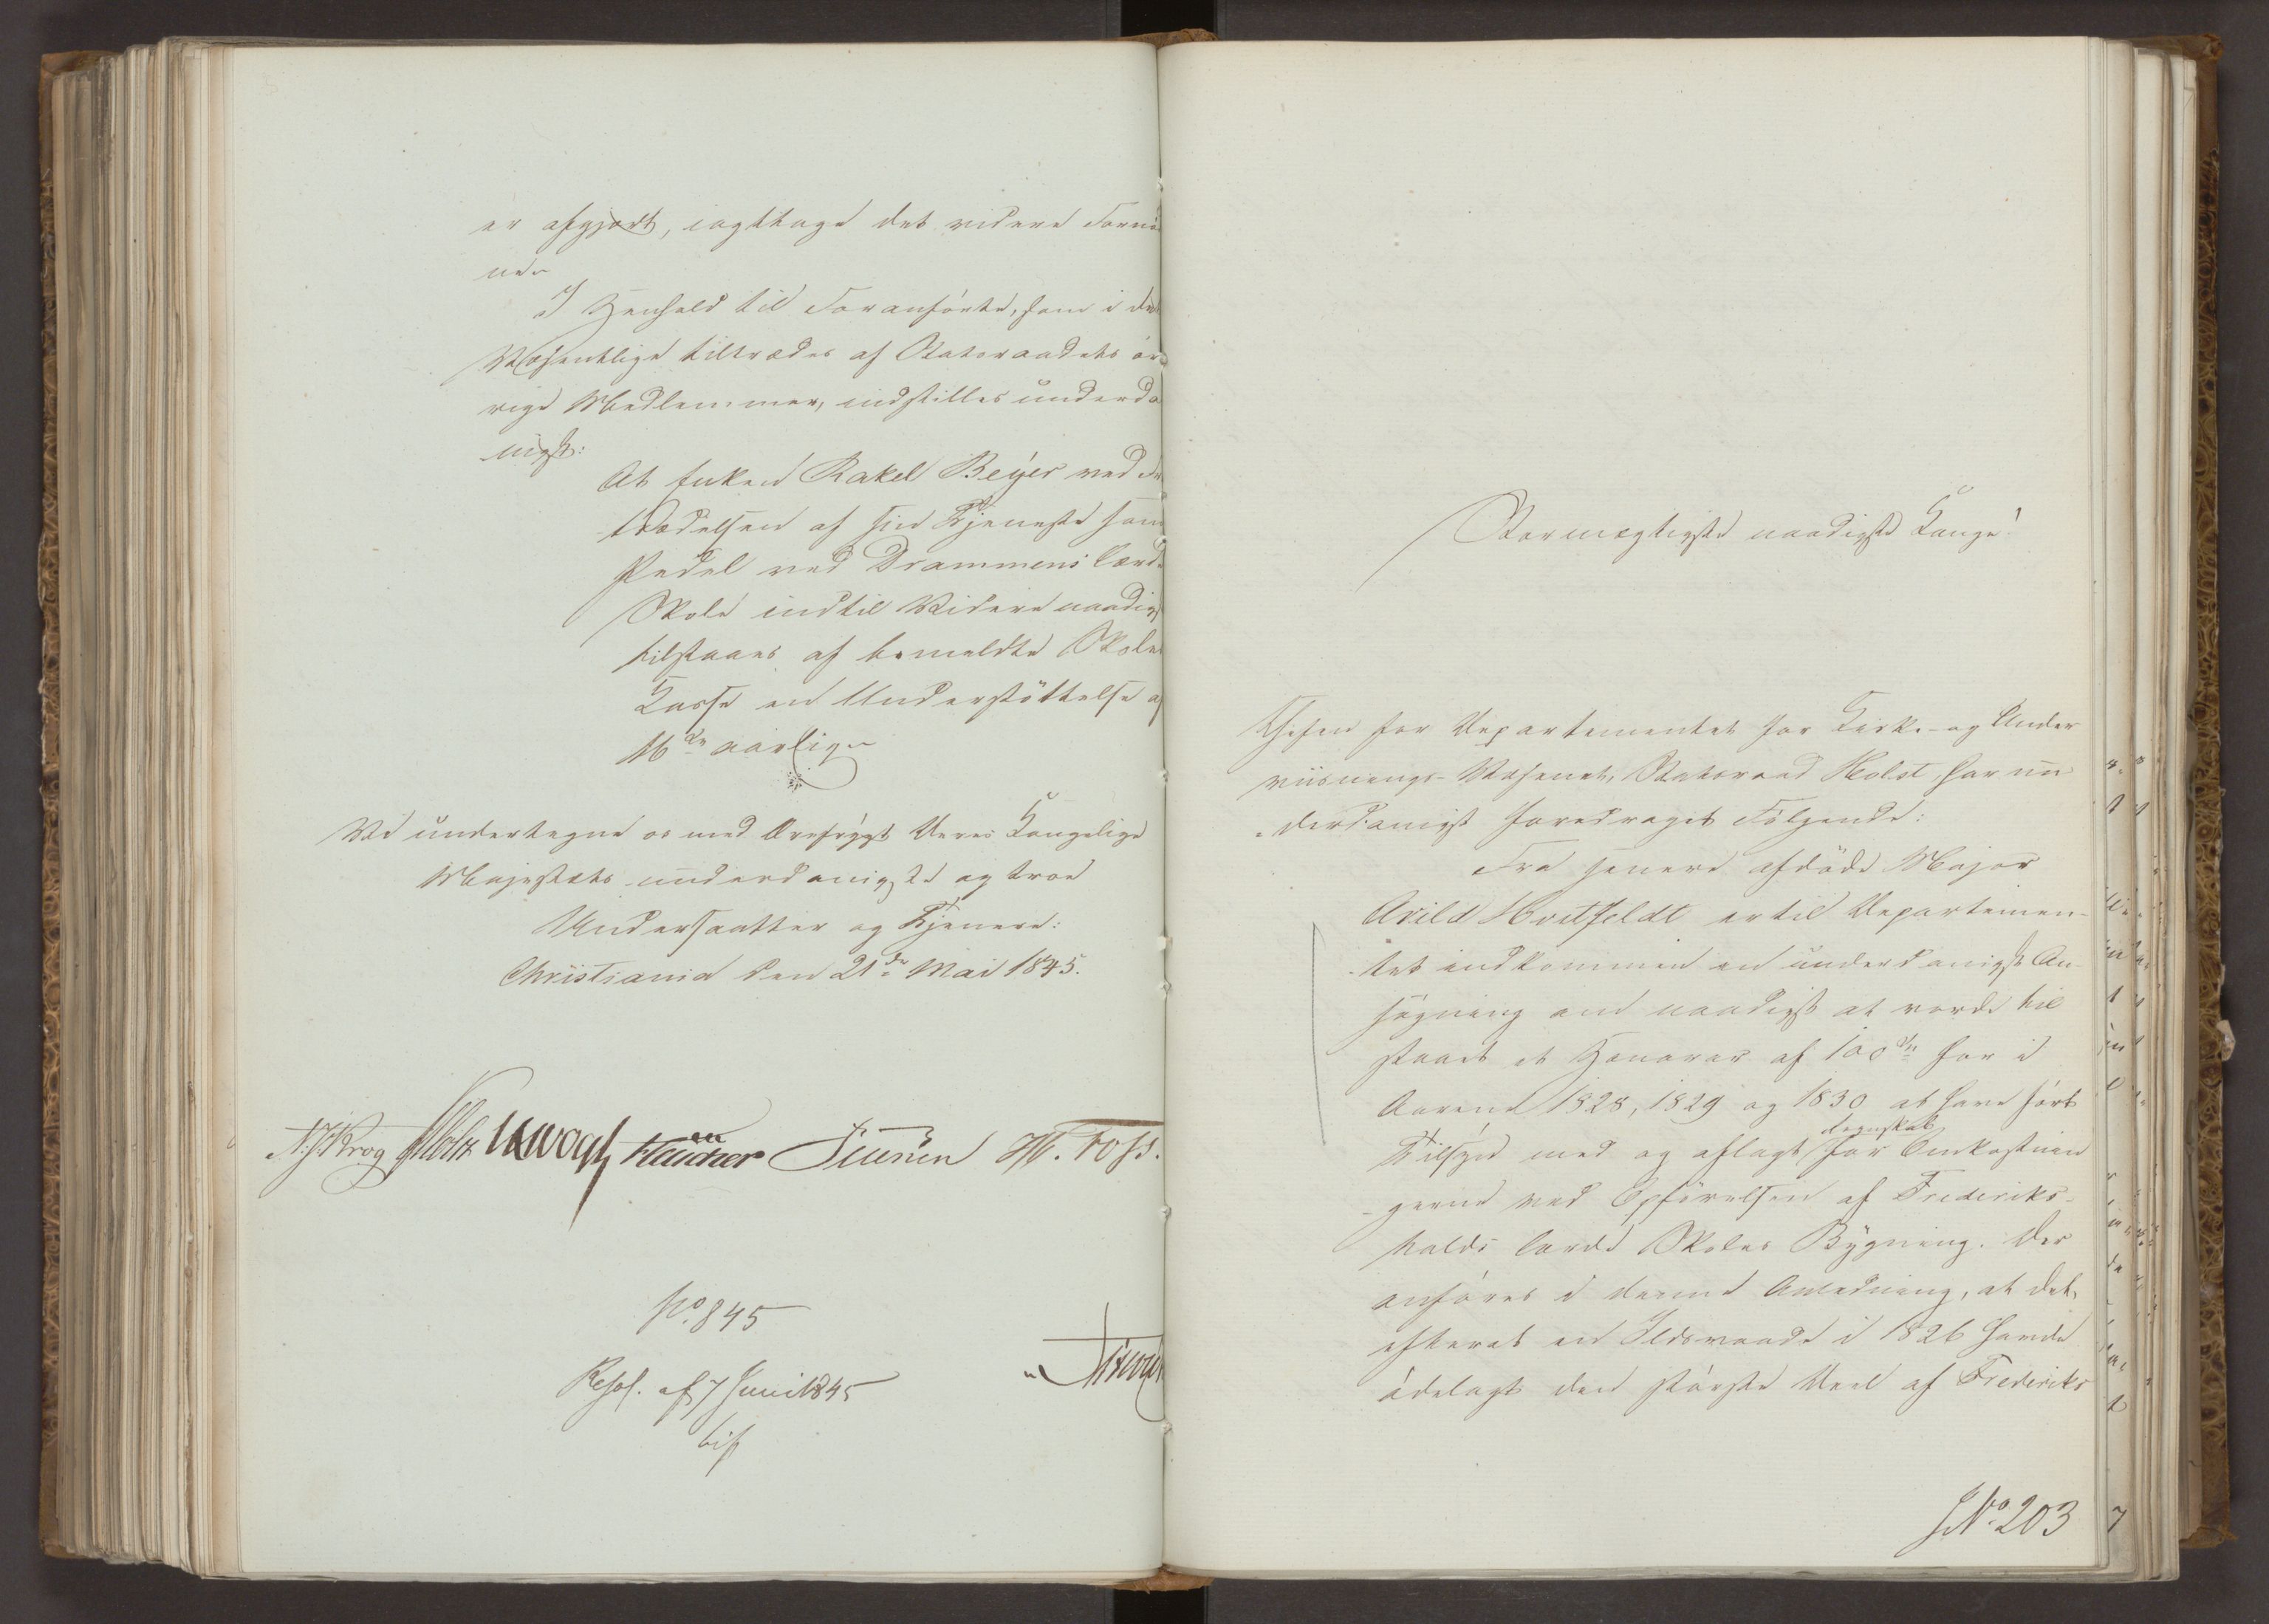 er afgjort, iagttage det videre Fornö
ne.
I Henhold til Foranförte, som i det
Væsentlige tiltrædes af Statsraadets öv
rige Medlemmer, indstilles underda
nigst:
At Enken Rakel Beyer ved Fra
trædelsen af sin Tjeneste som
Pedel ved Drammens lærde
Skole indtil Videre naadigst
tilstaaes af bemeldte Skoles
Kasse en Understöttelse af
16 aarlig.
Vi undertegne os med Ærefrygt Deres Kongelige
Majestæts underdanigste og troe
Undersaatter og Tjenere:
Christiania den 21de Mai 1845.
N. J. Krog Holst Vogt Sibbern H. Foss.
No. 845
Resol. af 7 Juni 1845
bif
Stormægtigste naadigste Konge!
Chefen for Departementet for Kirke- og Under
viisnings-Væsenet, Statsraad Holst, har un
derdanigst foredraget Fölgende:
Fra senere afdöde Major
Arild Hvitfeldt er til Departemen-
tet indkommen en underdanigst An-
sögning om naadigst at vorde til
staaet et Honorar af 100 for i
Aarene 1828, 1829 og 1830 at have fört
Tilsyn med og aflagt Regnskab for Omkostnin
gerne ved Opförelsen af Frederiks-
halds lærde Skoles Bygning. Der
anföres i denne Anledning, at det,
efterat en Ildsvaade i 1826 havde
ödelagt den störste Deel af Frederiks
J.No. 203